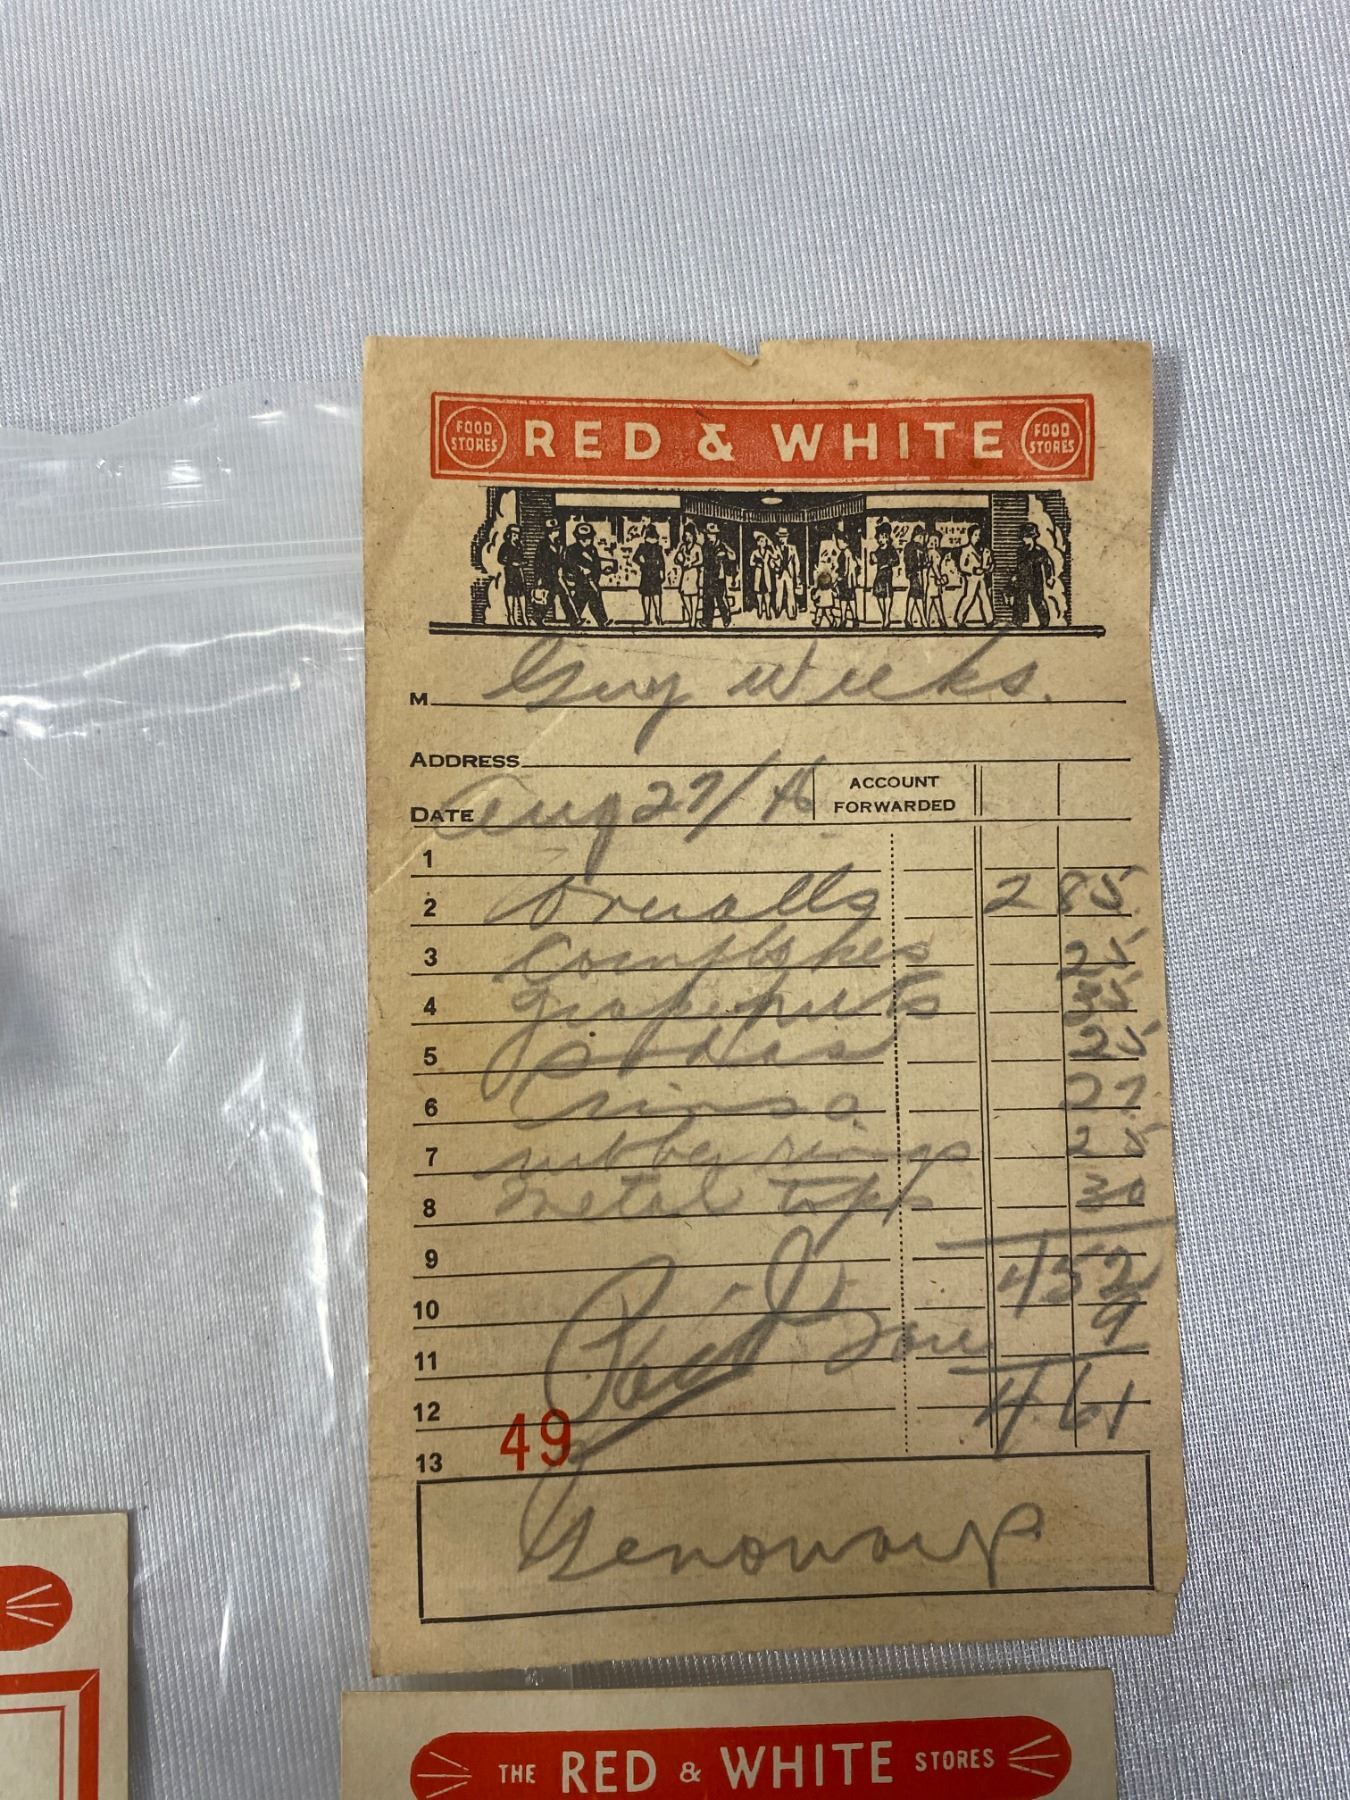 FOOD STORES RED & WHITE FOOD STORES
M Guy Weeks.
ADDRESS
DATE Aug 27/46 ACCOUNT FORWARDED
1
2 Overalls 2 85
3 Cornflakes 25
4 grapenuts 35
5 sodas 25
6 rinso 27
7 rubber rings 25
8 metal tops 30
9 4 52
10 9
11 Paid
12 4 61
13 49
THE RED & WHITE STORES